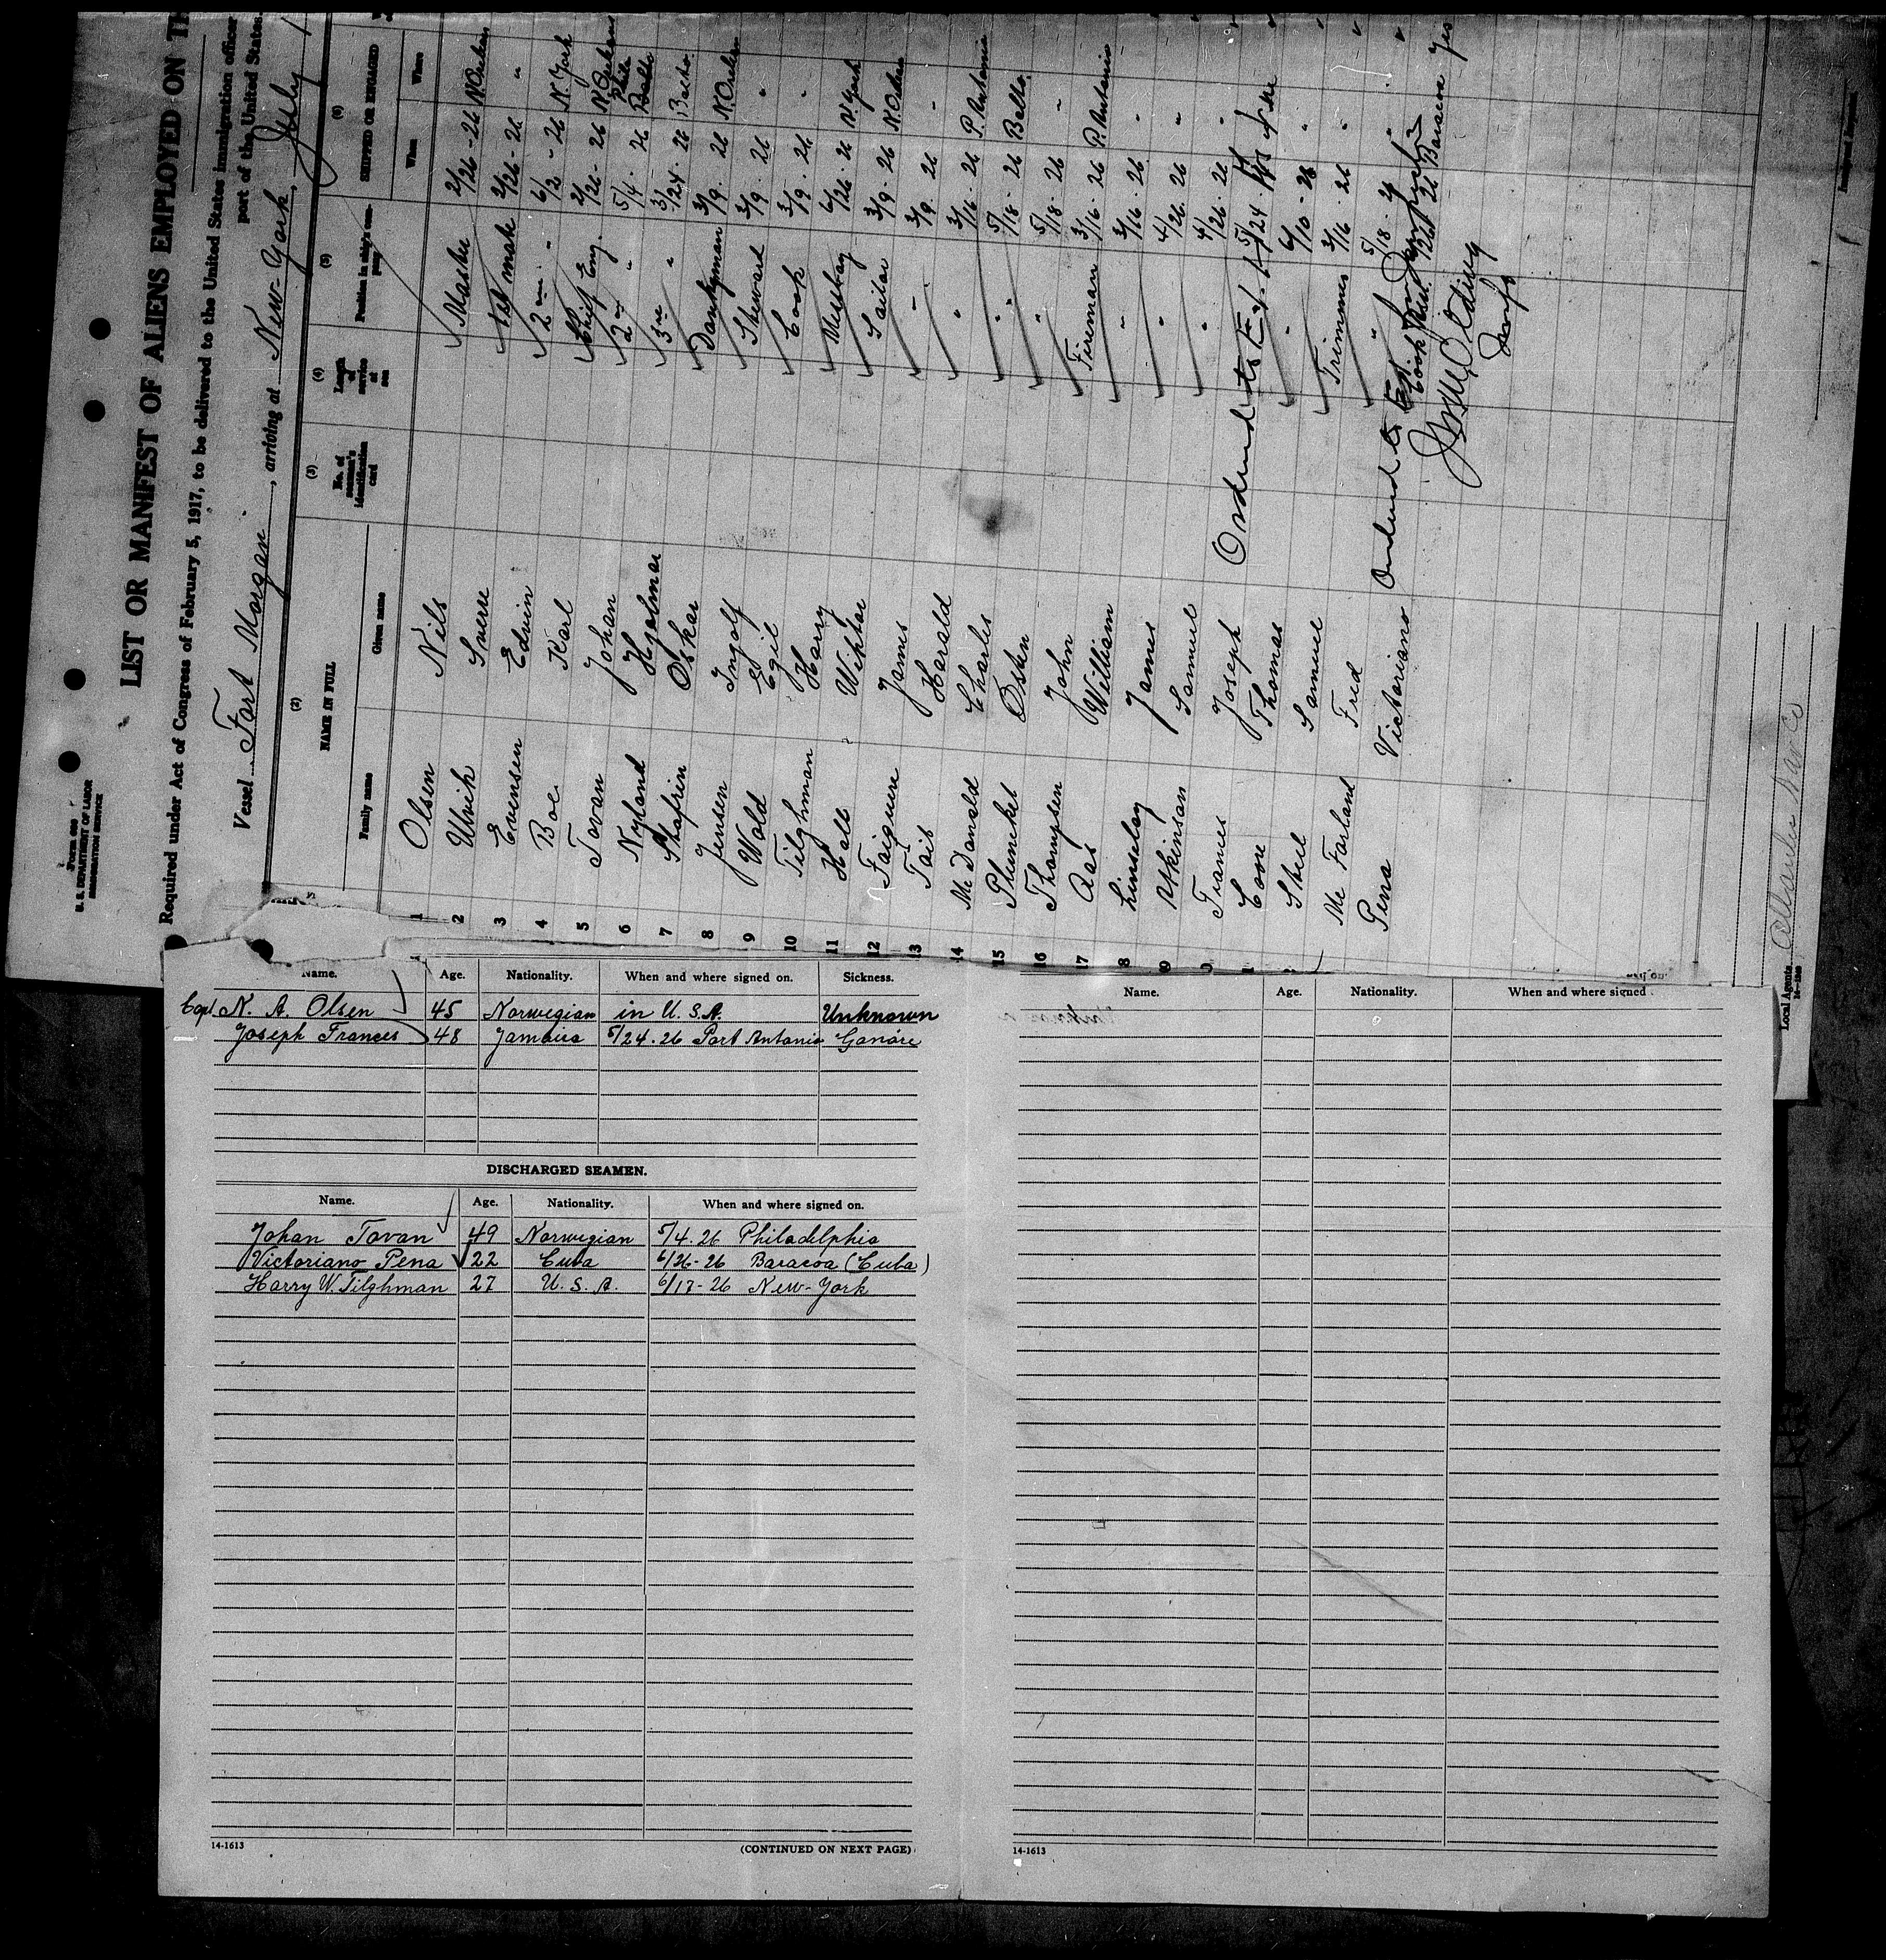 Form 680
U. S. DEPARTMENT OF LABOR
IMMIGRATION SERVICE
LIST OR MANIFEST OF ALIENS EMPLOYED ON TH
Required under Act of Congress of February 5, 1917, to be delivered to the United States immigration officer
port of the United States.
Vessel Fort Morgan, arriving at New-York, July 1
(2) (3) (4) (5) (6)
NAME IN FULL No. of seaman's identification card Length of service at sea Position in ship's company SHIPPED OR ENGAGED
Family name Given name When Where
1 Olsen Nils Master 2/26 - 26 N. Orleans
2 Ulvik Sverre 1st mate 2/26 - 26 "
3 Evensen Edvin 2 " 6/2 - 26 N. York
4 Boe Karl Chief Eng. 2/26 - 26 N. Orleans
5 Tovan Johan 2 " 5/4 - 26 Phila
6 Nyland Hjalmar 3re " 3/24 - 26 Balto.
7 Stafrin Oskar Donkyman 3/9 - 26 N. Orleans
8 Jensen Ingolf Steward 3/9 - 26 "
9 Wold Egil Cook 3/9 - 26 "
10 Tilghman Harry Messboy 6/26 - 26 N. York
11 Holt Wiktor Sailor 3/9 - 26 N. Orleans
12 James " 3/9 26 "
13 Tois Harald " 3/16 - 26 P. Antonio
14 Mc Donald Charles " 5/18 - 26 Balto.
15 Pluncket Osten " 5/18 - 26 "
16 Thompsen John Fireman 3/16 - 26 P. Antonio
17 Aas William " 3/16 - 26 "
8 Linselay James " 4/26 - 26 "
9 Atkinson Samuel " 4/26 - 26 "
0 Frances Joseph 5/24
1 Coore Thomas " 6/10 - 26 "
Steel Samuel Trimmer 3/16 - 26 "
Mc Farland Fred " 5/18 - 26 "
Pena Victoriano 6/26 26 Baracoa Yes
Local Agents
14-1240
Immigrant Inspector.
Name. Age. Nationality. When and where signed on. Sickness.
Capt N. A. Olsen 45 Norwegian in U. S. A. Unknown
Joseph Frances 48 Jamaica 5/24 - 26 Port Antonio Gonore
DISCHARGED SEAMEN.
Name. Age. Nationality. When and where signed on.
Johan Tovan 49 Norwegian 5/4 . 26 Philadelphia
Victoriano Pena 22 Cuba 6/26 - 26 Baracoa (Cuba)
Harry W. Tilghman 27 U. S. A. 6/17 - 26 New-York
14-1613 (CONTINUED ON NEXT PAGE)
Name. Age. Nationality. When and where signed
14-1613